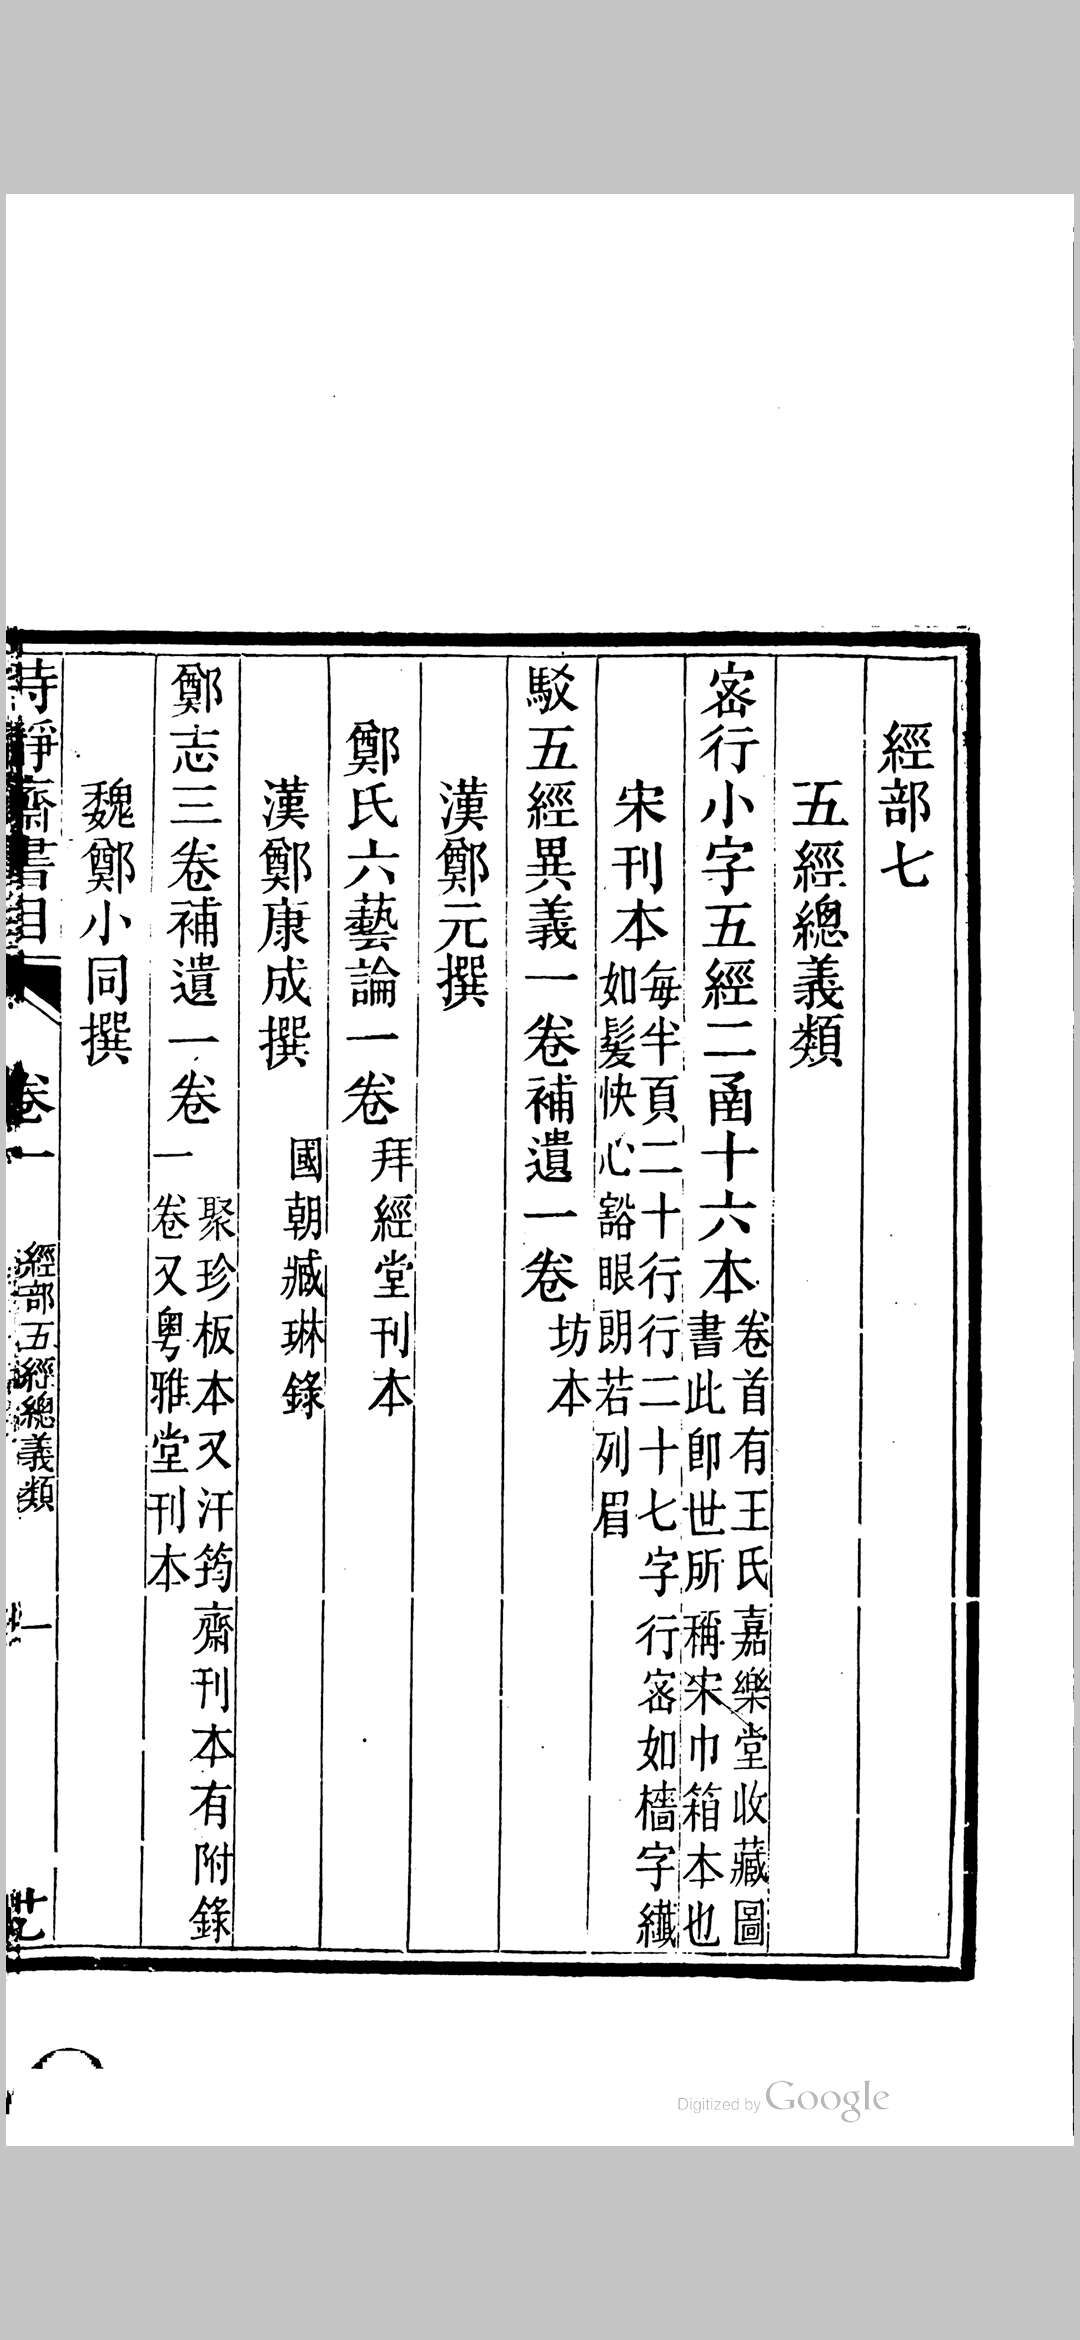 經部七
五經總義類
宻行小字五經二函十六本 卷首有王氏嘉樂堂收藏圖
書此卽世所稱宋巾箱本也
宋刊本 每半頁二十行行二十七字行宻如檣字纎
如髮快心豁眼朗若列眉
駁五經異義一卷補遺一卷 坊本
漢鄭元撰
鄭氏六藝論一卷 拜經堂刊本
漢鄭康成撰 國朝臧琳錄
鄭志三卷補遺一卷 聚珍板本又汗筠齋刊本有附錄
一卷又粵雅堂刊本
魏鄭小同撰
持靜齋書目 卷一 經部五經總義類 一
Digitized by Google